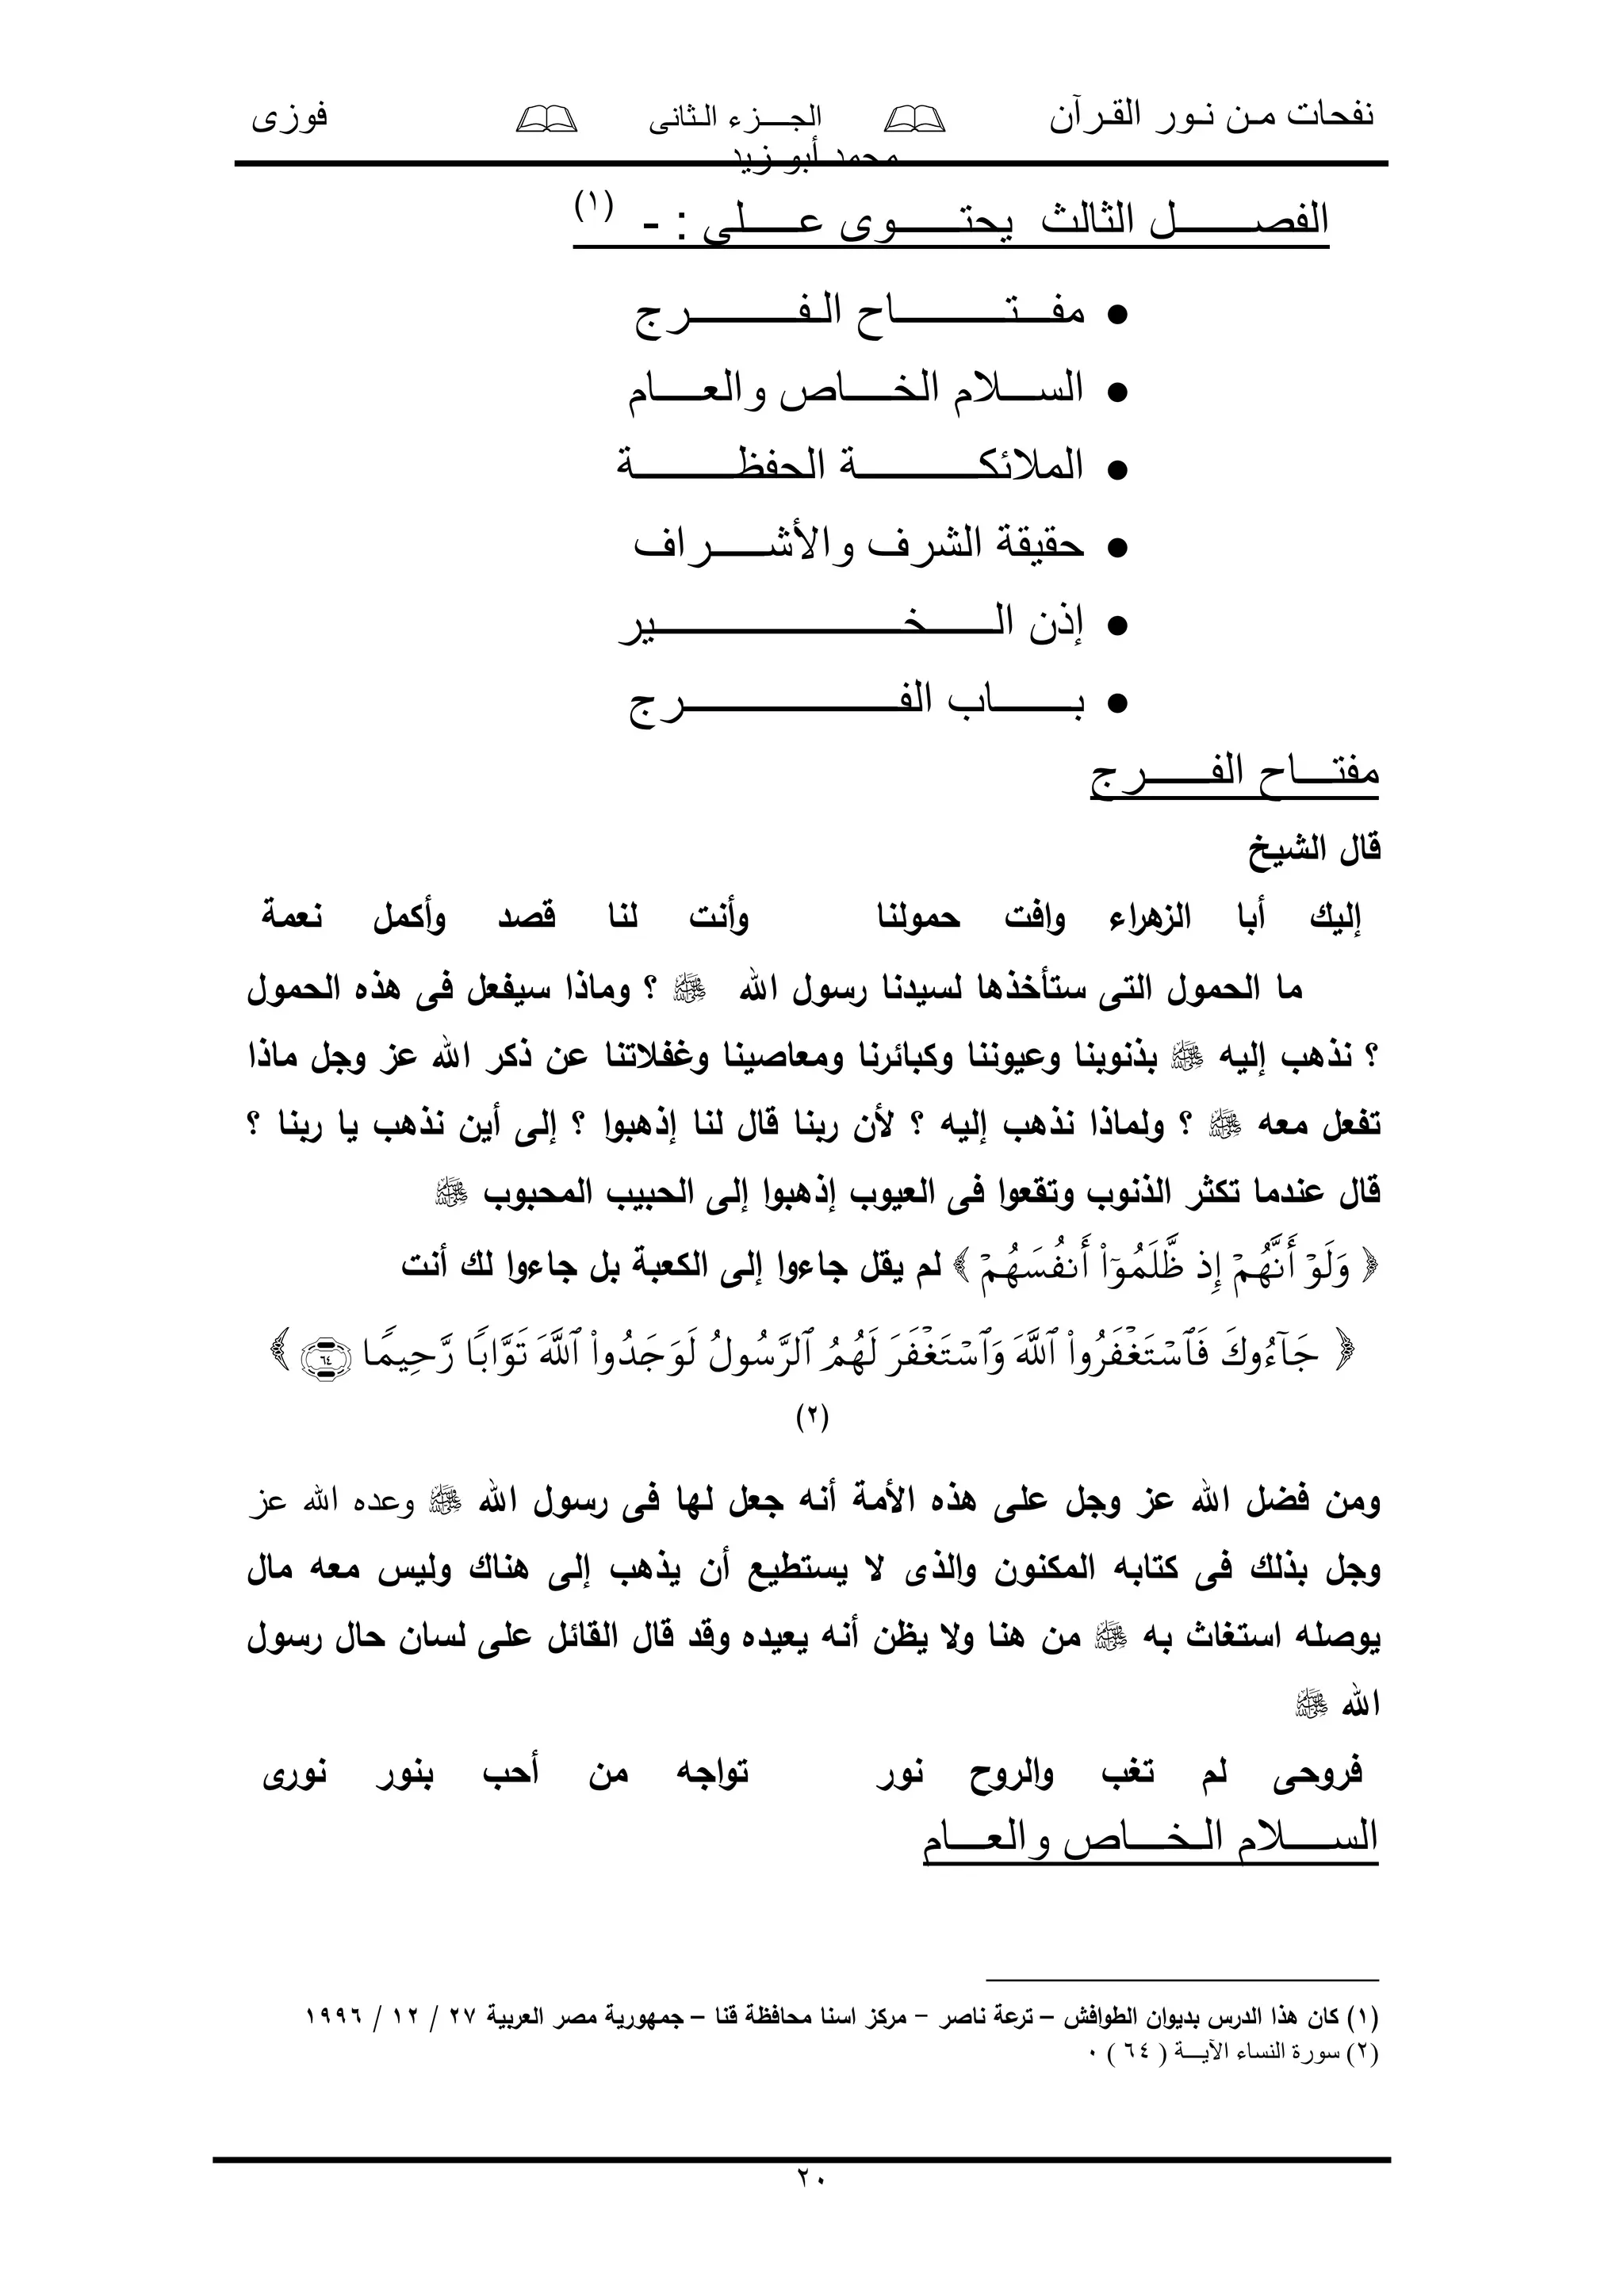 نفحات من نور القرآن الجزء الثانى فوزى
محمد أبو زيد
الفصل الثالث يحتوى على : - (١)
• مفتاح الفرج
• السلام الخاص والعام
• الملائكة الحفظة
• حقيقة الشرف والأشراف
• إذن الخير
• باب الفرج
مفتاح الفرج
قال الشيخ
إليك أبا الزهراء وافت حمولنا وأنت لنا قصد وأكمل نعمة
ما الحمول التى ستأخذها لسيدنا رسول الله ﷺ ؟ وماذا سيفعل فى هذه الحمول
؟ نذهب إليه ﷺ بذنوبنا وعيوننا وكبائرنا ومعاصينا وغفلاتنا عن ذكر الله عز وجل ماذا
تفعل معه ﷺ ؟ ولماذا نذهب إليه ؟ لأن ربنا قال لنا إذهبوا ؟ إلى أين نذهب يا ربنا ؟
قال عندما تكثر الذنوب وتقعوا فى العيوب إذهبوا إلى الحبيب المحبوب ﷺ
﴿ وَلَوْ أَنَّهُمْ إِذ ظَّلَمُوٓا۟ أَنفُسَهُمْ ﴾ لم يقل جاءوا إلى الكعبة بل جاءوا لك أنت
﴿ جَآءُوكَ فَٱسْتَغْفَرُوا۟ ٱللَّهَ وَٱسْتَغْفَرَ لَهُمُ ٱلرَّسُولُ لَوَجَدُوا۟ ٱللَّهَ تَوَّابًا رَّحِيمًا ٦٤ ﴾
(٢)
ومن فضل الله عز وجل على هذه الأمة أنه جعل لها فى رسول الله ﷺ وعده الله عز
وجل بذلك فى كتابه المكنون والذى لا يستطيع أن يذهب إلى هناك وليس معه مال
يوصله استغاث به ﷺ من هنا ولا يظن أنه يعيده وقد قال القائل على لسان حال رسول
الله ﷺ
فروحى لم تغب والروح نور تواجه من أحب بنور نورى
السلام الخاص والعام
(١) كان هذا الدرس بديوان الطوافش – ترعة ناصر - مركز اسنا محافظة قنا – جمهورية مصر العربية ٢٧ / ١٢ / ١٩٩٦
(٢) سورة النساء الآية ( ٦٤ ) ٠
٢٠